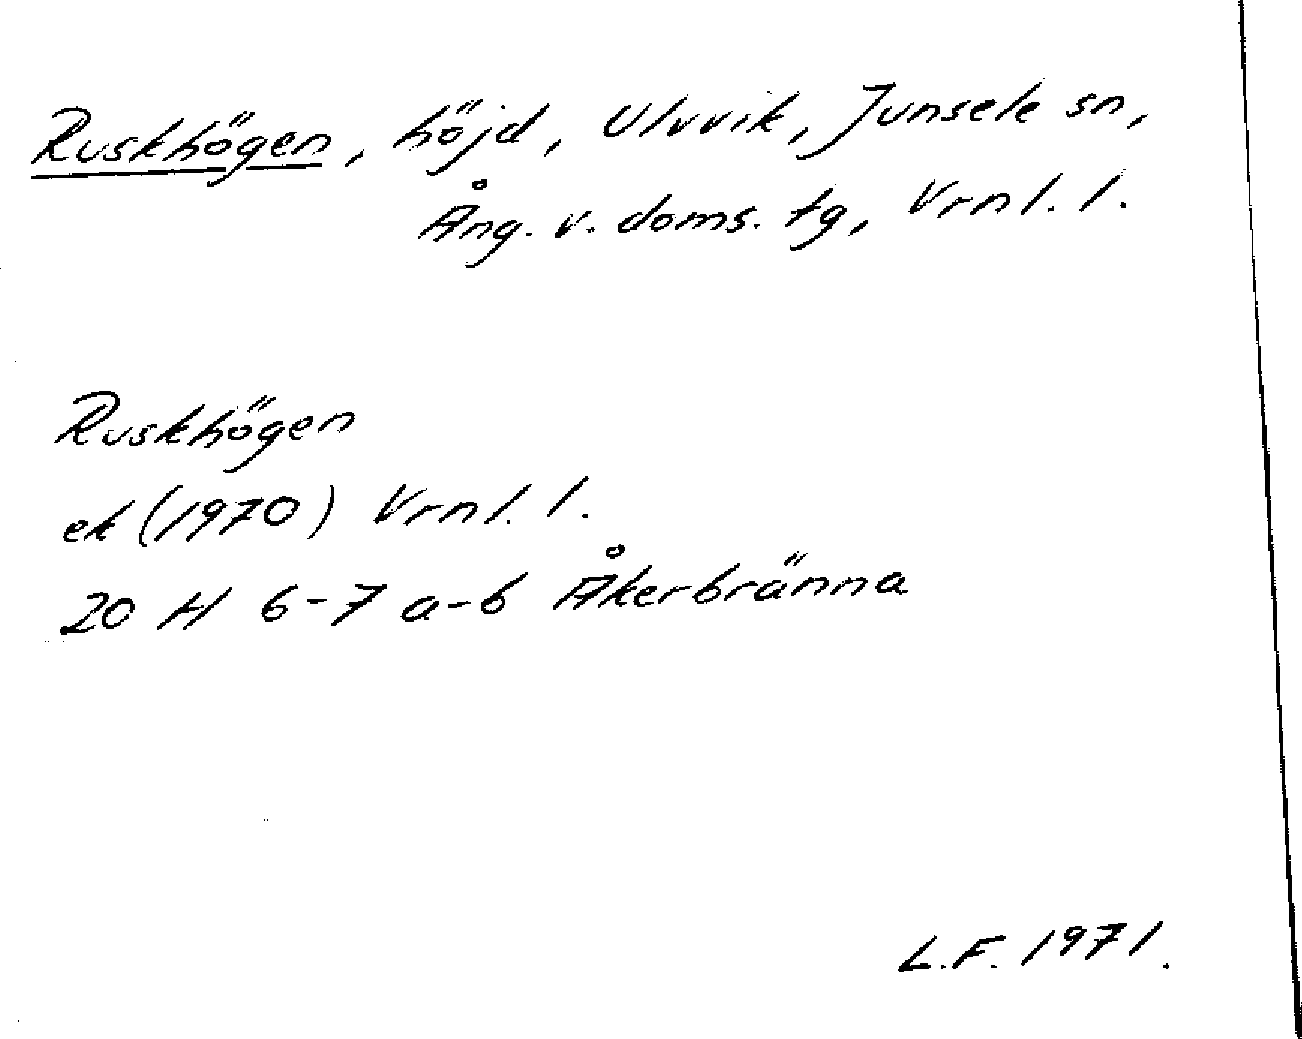 Ruskhögen, höjd, Ulvvik, Junsele sn,
Ång. v. doms. tg, Vrnl. l.
Ruskhögen
ek (1970) Vrnl. l.
20 H 6-7 a-b Åkerbränna
L.F. 1971.